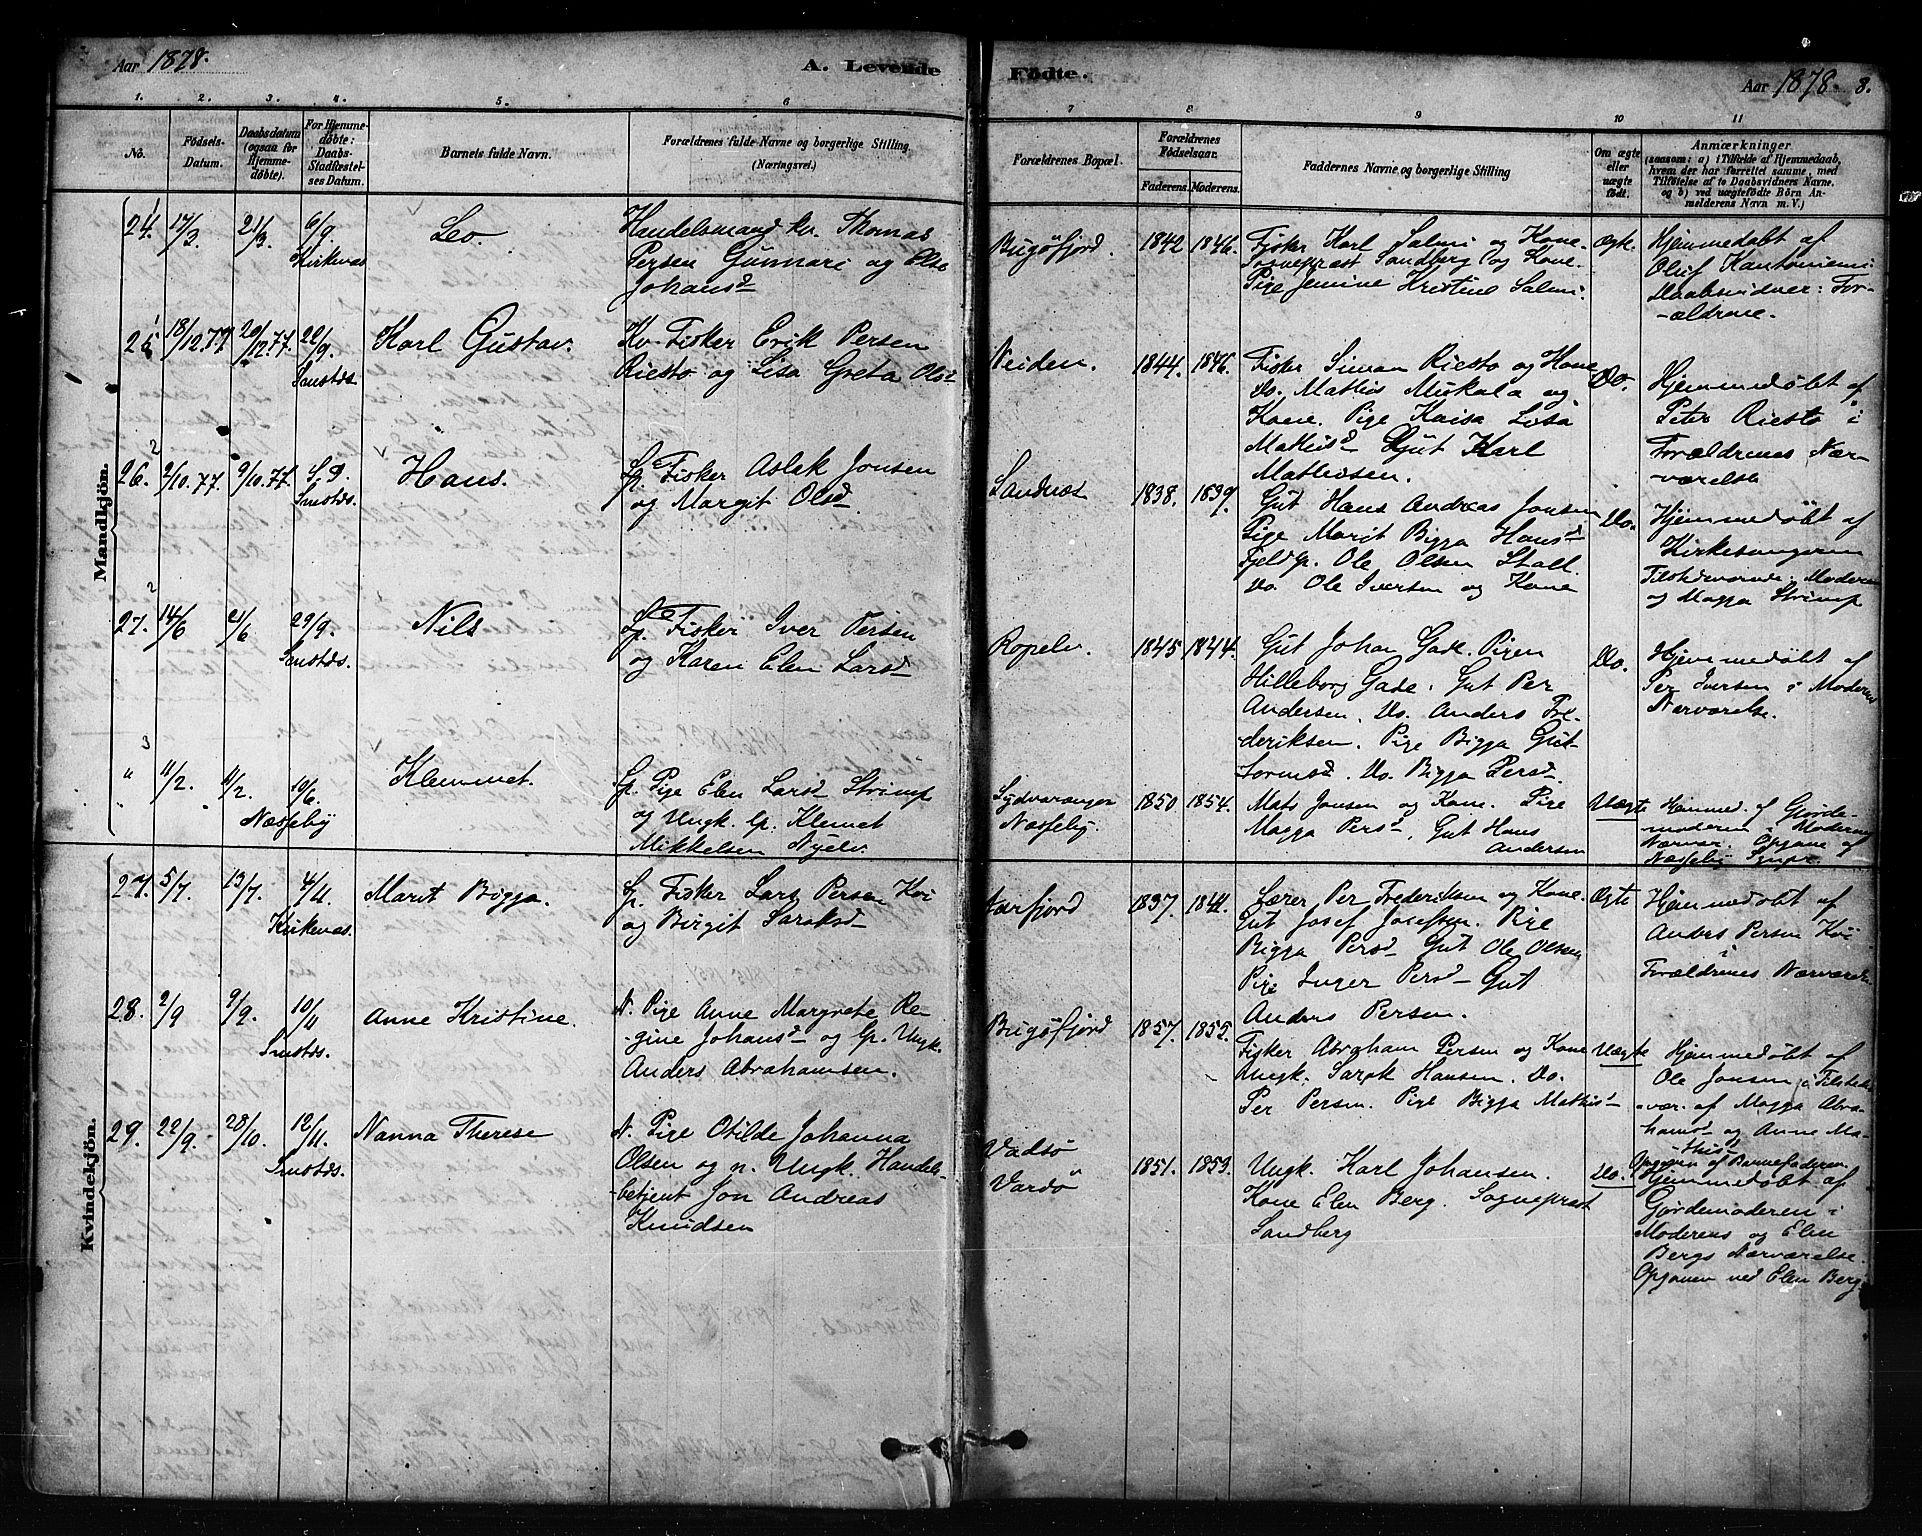 Aar 1878.
A. Levende Fødte.
Aar 1878. 8.
1. 2. 3. 4. 5. 6 7 8 9 10 11
No.
Fødsels-Datum.
Daabsdatum (ogsaa for Hjemme-døbte).
For Hjemme-døbte: Daabs-Stadfæstel-ses Datum.
Barnets fulde Navn.
Forældrenes fulde Navne og borgerlige Stilling, (Næringsvei.)
Forældrenes Bopæl.
Forældrenes Fødselsaar.
Faderens. Moderens.
Faddernes Navne og borgerlige Stilling
Om ægte eller uægte født.
Anmærkninger
(saasom: a) i Tilfælde af Hjemmedaab,
hvem der har forrettet samme, med
Tilføielse af to Daabsvidners Navne,
og b) ved uægtefødte Børn An-
melderens Navn m. V.)
Mandkjön.
24. 17/3 21/3 6/9 Kirkenæs
Leo.
Handelsmand kv. Thomas
Persen Gunnari og Else
Johansd
Bugöfjord. 1842 1846.
Fisker Karl Salmi og Kone.
Sogneprest Sandberg og Kone.
Pige Jemine Kristine Salmi.
Ægte.
Hjemmedøbt af
Oluf Kantoniemi
Daabsvidner: For-
-ældrene.
25. 18/12.77 20/12.77. 22/9. Smstds
Karl Gustav.
Kv. Fisker Erik Persen
Riesto og Lisa Greta Olsd
Neiden. 1844. 1846.
Fisker Siman Riesto og Kone
Do. Mathis Mukala og
Kone. Pige Kaisa Lisa
Mathisd Gut Karl
Mathisen.
Do.
Hjemmedøbt af
Peter Riesto i
Forældrenes Nær-
værelse
26. 2/10.77. 9/10.77. S.D. Smstds.
Hans.
Lp. Fisker Aslak Jonsen
og Margit Olsd.
Sandnæs 1838. 1839.
Gut Hans Andreas Jonsen
Pige Marit Bigga Hansd
Fjeldlp. Ole Olsen Stall.
Do. Ole Iversen og Kone
Do.
Hjemmedøbt af
Kirkesangeren
Tilstedeværende: Moderen
og Magga Strimp
27. 14/6 21/6 29/9. Smstds.
Nils
Lp. Fisker Iver Persen
og Karen Elen Larsd
Ropelv. 1845 1844.
Gut Johan Gade. Pigen
Hilleborg Gade. Gut Per
Andersen. Do. Anders Fre-
deriksen. Pige Bigga Gut-
tormsd. Do. Bigga Persd.
Do.
Hjemmedøbt af
Per Iversen i Moderens
Nærværelse.
" 11/2. 11/2. 10/6. Næsseby
Klemmet.
Lp. Pige Elen Larsd Strimp
og Ungk. lp. Klemet
Mikkelsen Nyelv.
Sydvaranger
Næsseby. 1850 1854.
Mats Jonsen og Kone. Pige
Magga Persd. Gut Hans
Andersen
Uægte
Hjemmed. af Gjorde-
moderen i Moderens
Nærvær. Opgave af
Næsseby
Kvindekjön.
27. 5/7. 13/7. 4/11. Kirkenæs.
Marit Bigga.
Lp. Fisker Lars Persen Koi
og Birgit Saraksd
Jarfjord 1837. 1844.
Lærer Per Frederiksen og Kone.
Gut Josef Josefsen. Pige
Bigga Persd Gut Ole Olsen
Pige Inger Persd Gut
Anders Persen.
Ægte
Hjemmedøbt af
Anders Persen Koi
i
Forældrenes Nærværelse
28. 2/9 9/9. 10/11 Smstds.
Anne Kristine.
N. Pige Anne Margrete Re-
gine Johansd og lp. Ungk.
Anders Abrahamsen.
Bugöfjord 1857. 1855.
Fisker Abraham Persen og Kone
Ungk. Sarak Hansen. Do.
Per Persen. Pige Bigga Mathisd
Uægte
Hjemmedøbt af
Ole Jonsen i Tilstede-
-vær. af Magga Abra-
hamsd og Anne Ma-
thisd
Opgiven af Barnefaderen.
29. 22/9. 20/10. 12/11. Smstds.
Nanna Therese
N. Pige Otilde Johanna
Olsen og n. Ungk. Handels-
-betjent Jon Andreas
Knudsen
Vadsö
Vardö 1851. 1853.
Ungk. Karl Johansen.
Kone Elen Berg. Sogneprest
Sandberg
Do.
Hjemmedøbt af
Gjordemoderen i
Moderens og Elen
Bergs Nærværelse.
Opgiven ved Elen Berg